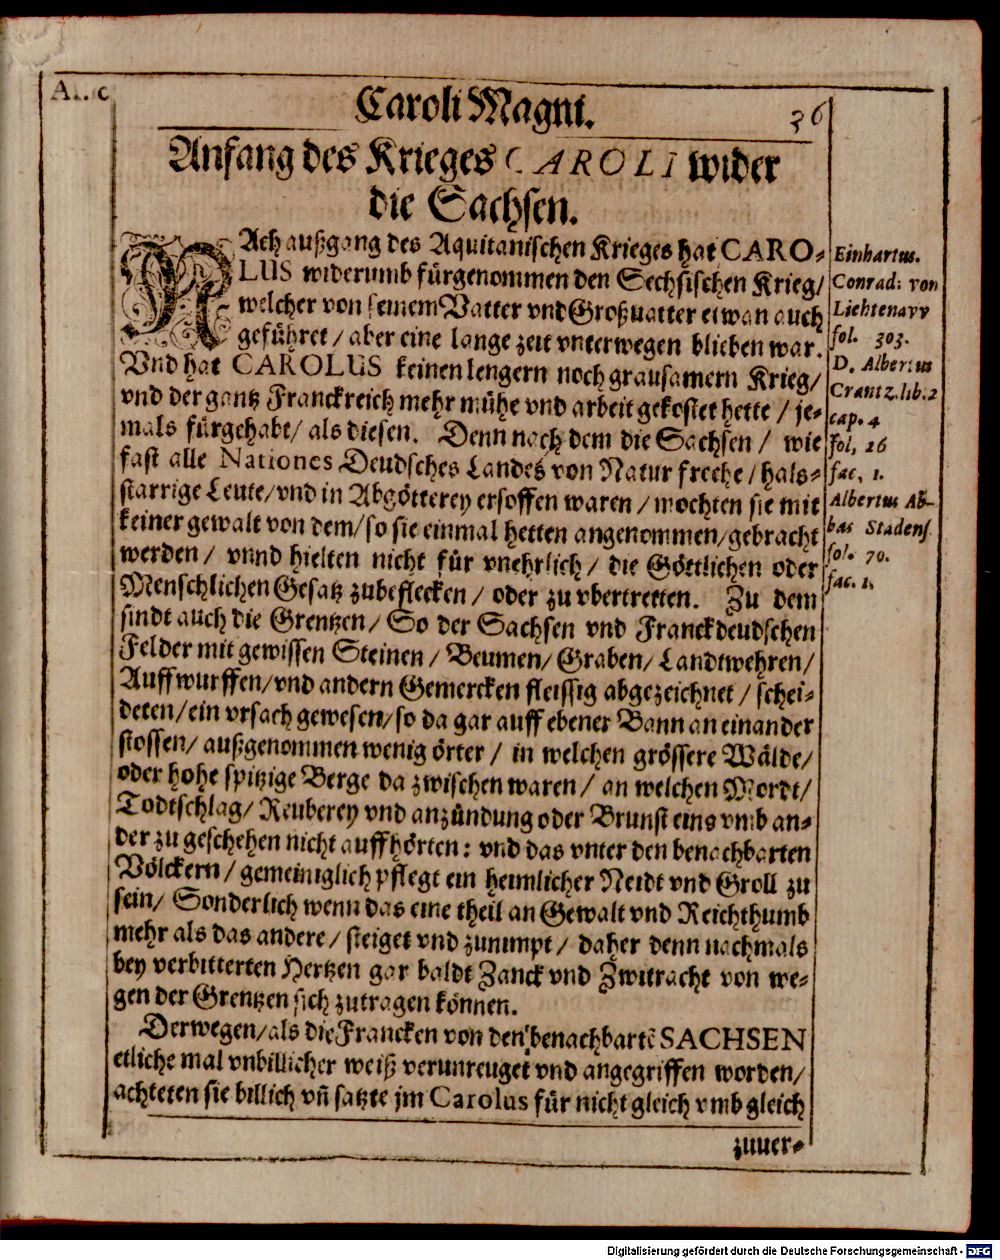 Caroli Magni.
36
Anfang des Krieges CAROLI wider
die Sachsen.
NAch außgang des Aquitanischen Krieges hat CARO-
LUS widerumb fürgenommen den Sechsischen Krieg/
welcher von seinem Vatter vnd Großuatter etwan auch
geführet / aber eine lange zeit vnterwegen blieben war.
Vnd hat CAROLUS keinen lengern noch grausamern Krieg/
vnd der gantz Franckreich mehr mühe vnd arbeit gekostet hette / je-
mals fürgehabt/ als diesen. Denn nach dem die Sachsen / wie
fast alle Nationes Deudsches Landes von Natur freche / hals-
starrige Leute/vnd in Abgötterey ersoffen waren / mochten sie mit
keiner gewalt von dem/so sie einmal hetten angenommen/gebracht
werden / vnnd hielten nicht für vnehrlich / die Göttlichen oder
Menschlichen Gesatz zubeflecken / oder zu vbertretten. Zu dem
sindt auch die Grentzen / So der Sachsen vnd Franckdeudschen
Felder mit gewissen Steinen / Beumen/ Graben/ Landtwehren/
Auffwurffen/vnd andern Gemercken fleissig abgezeichnet / schei-
deten/ein vrsach gewesen/so da gar auff ebener Bann an einander
stossen/ außgenommen wenig örter / in welchen grössere Wälde/
oder hohe spitzige Berge da zwischen waren / an welchen Mordt/
Todtschlag/ Reuberey vnd anzündung oder Brunst eins vmb an-
der zu geschehen nicht auffhörten: vnd das vnter den benachbarten
Völckern / gemeiniglich pflegt ein heimlicher Neidt vnd Groll zu
sein/ Sonderlich wenn das eine theil an Gewalt vnd Reichthumb
mehr als das andere/ steiget vnd zunimpt / daher denn nachmals
bey verbitterten Hertzen gar baldt Zanck vnd Zwitracht von we-
gen der Grentzen sich zutragen können.
Derwegen/als die Francken von den benachbartē SACHSEN
etliche mal vnbillicher weiß verunreuget vnd angegriffen worden/
achteten sie billich vn̄ satzte jm Carolus für nicht gleich vmb gleich
zuuer-
Einhartus.
Conrad: von
Liechtenavv
fol. 303.
D. Albertus
Crantz.lib.2
cap. 4
Fol, 26
fac, 1.
Albertus Ab-
bas Stadens.
fol. 70.
fac. 1.
Digitalisierung gefördert durch die Deutsche Forschungsgemeinschaft - DFG